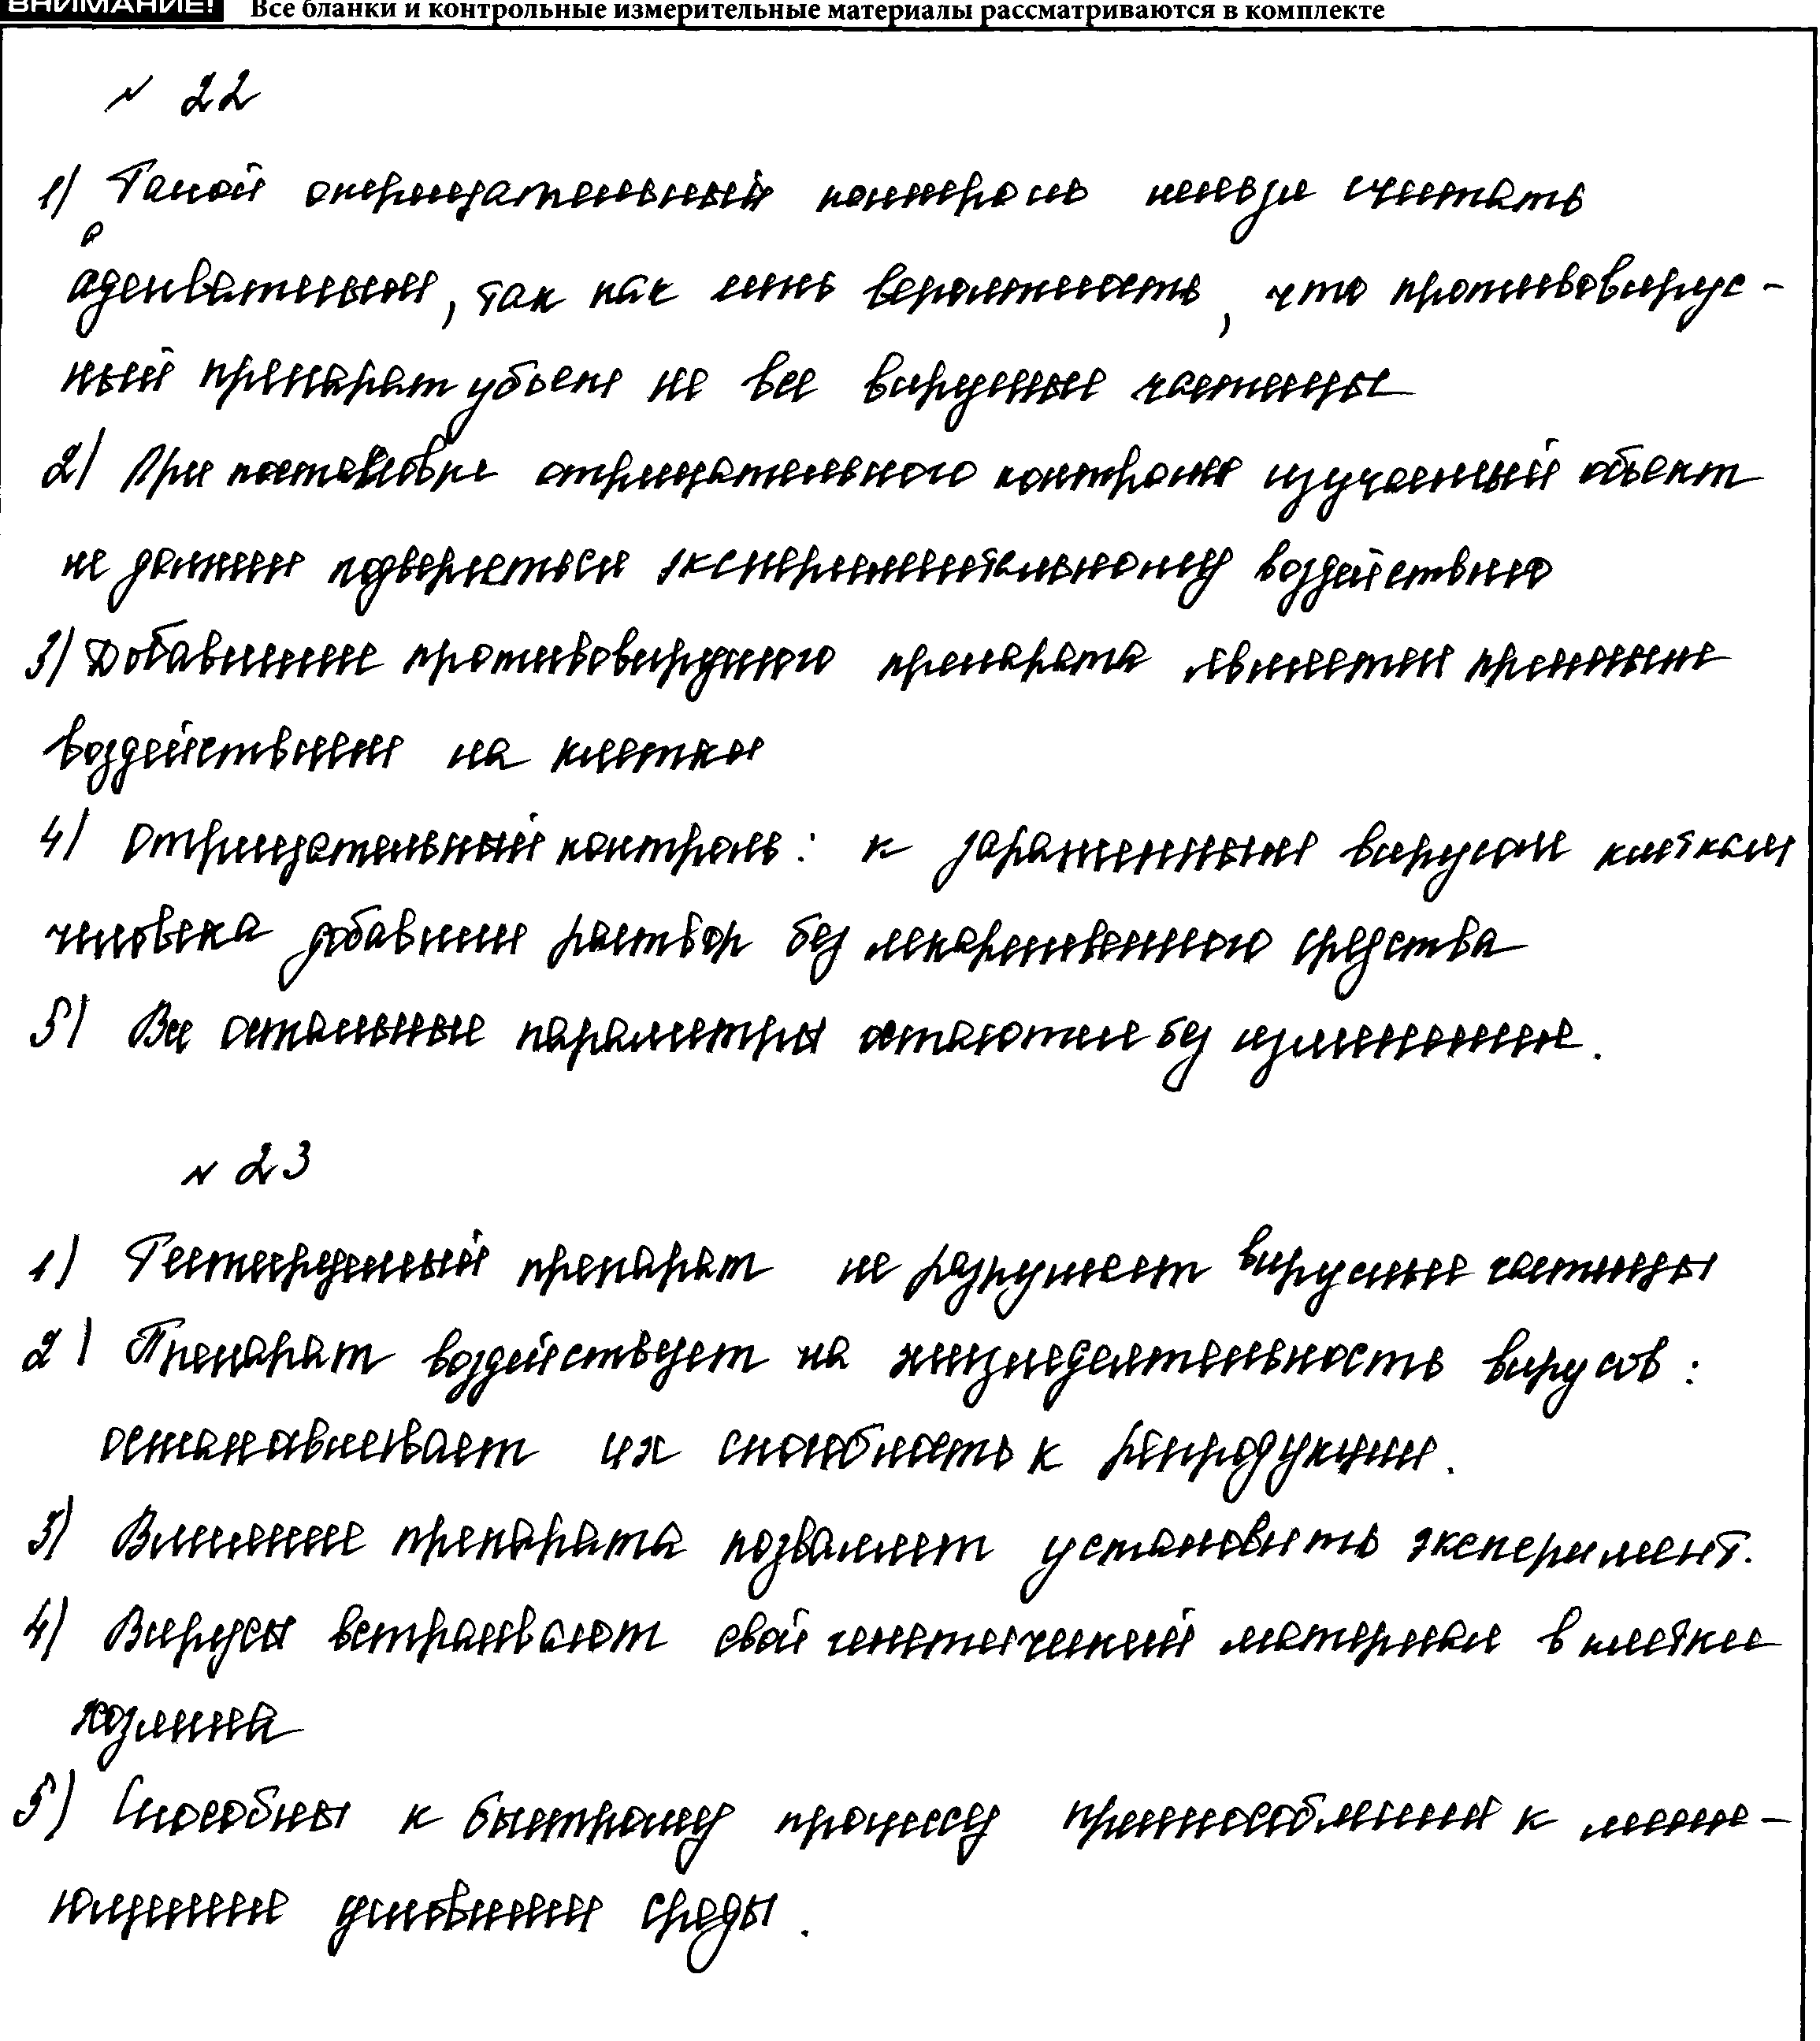 ВНИМАНИЕ! Все бланки и контрольные измерительные материалы рассматриваются в комплекте
N 22
1) Такой отрицательный контроль нельзя считать
адекватным, так как есть вероятность, что противовирус-
ный препарат убьет не все вирусные частицы
2) При постановке отрицательного контроля изучаемый объект
не должен подвергаться экспериментальному воздействию
3) Добавление противовирусного препарата является прямым
воздействием на клетки
4) Отрицательный контроль: к зараженным вирусом клеткам
человека добавим раствор без лекарственного средства
5) Все остальные параметры остаются без изменения.
N 23
1) Тестируемый препарат не разрушает вирусные частицы
2) Препарат воздействует на жизнедеятельность вирусов:
останавливает их способность к репродукции.
3) Влияние препарата позволяет установить эксперимент.
4) Вирусы встраивают свой генетический материал в клетки
хозяина
5) Способны к быстрому процессу приспособления к меня-
ющимся условиям среды.